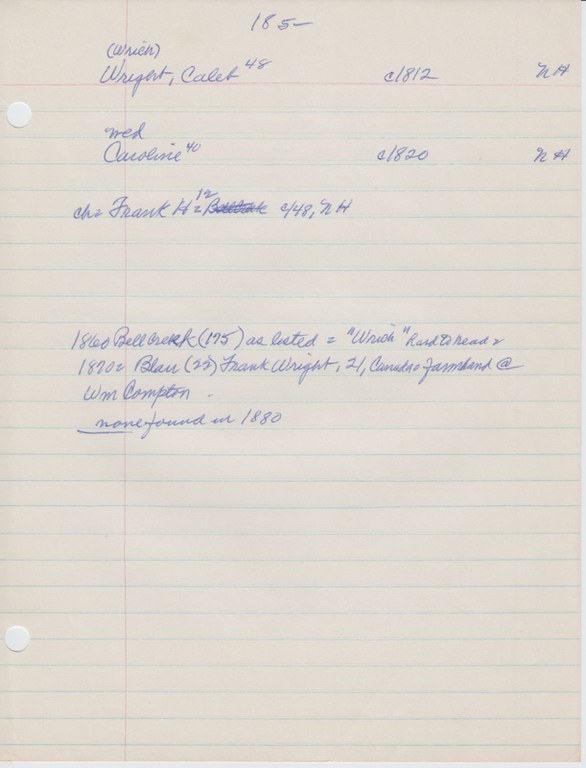 185-
(Wrich)
Wright, Caleb 48 c1812 NH
wed
Caroline 40 c1820 NH
ch= Frank H= 12 c/48, NH
1860 Bell Creek (175) as listed = "Wrich" hard to read=
1870= Blair (22) Frank Wright, 21, Canada= farmhand @
Wm Compton.
none found in 1880